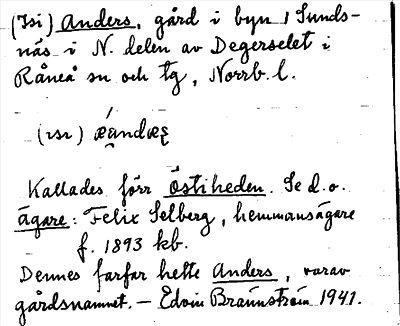 (Isi) Anders, gård i byn / Sunds-
näs i N. delen av Degerselet i
Råneå sn och tg, Norrb. l.
(ısı)
Kallades förr Östiheden. Se d.o.
Ägare: Felix Selberg, hemmansägare
f. 1893 kb.
Dennes farfar hette Anders, varav
gårdsnamnet. — Edvin Brännström 1941.